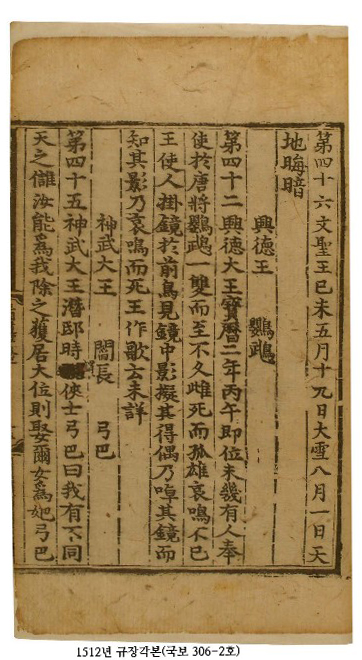 第四十六文聖王己未五月十九日大雪八月一日天
地晦暗
興德王 鸚鵡
第四十二興德大王寶曆二年丙午即位未幾有人奉
使於唐將鸚鵡一雙而至不久雌死而孤雄哀鳴不已
王使人掛鏡於前鳥見鏡中影擬其得偶乃啅其鏡而
知其影乃哀鳴而死王作歌云未詳
神武大王 閻長 弓巴
第四十五神武大王潛邸時俠士弓巴曰我有不同
天之讎汝能爲我除之獲居大位則娶爾女爲妃弓巴
1512년 규장각본(국보 306-2호)